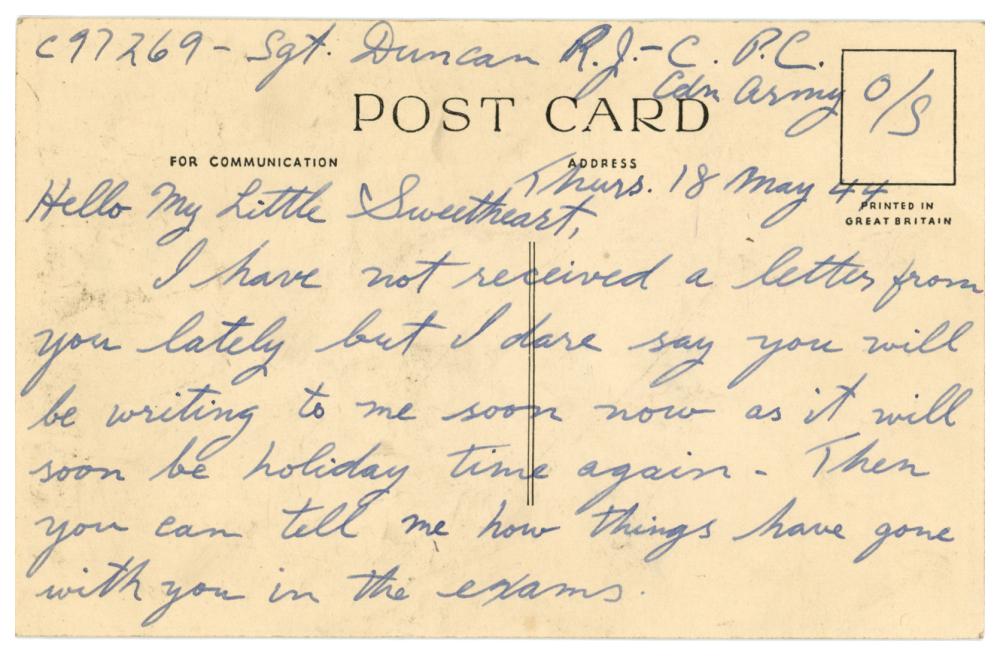 C97269 - Sgt. Duncan R.J. - C.P.C.
Cdn Army O/S
POST CARD
FOR COMMUNICATION ADDRESS
Thurs. 18 May 44
PRINTED IN
GREAT BRITAIN
Hello My Little Sweetheart,
I have not received a letter from
you lately but I dare say you will
be writing to me soon now as it will
soon be holiday time again - Then
you can tell me how things have gone
with you in the exams.